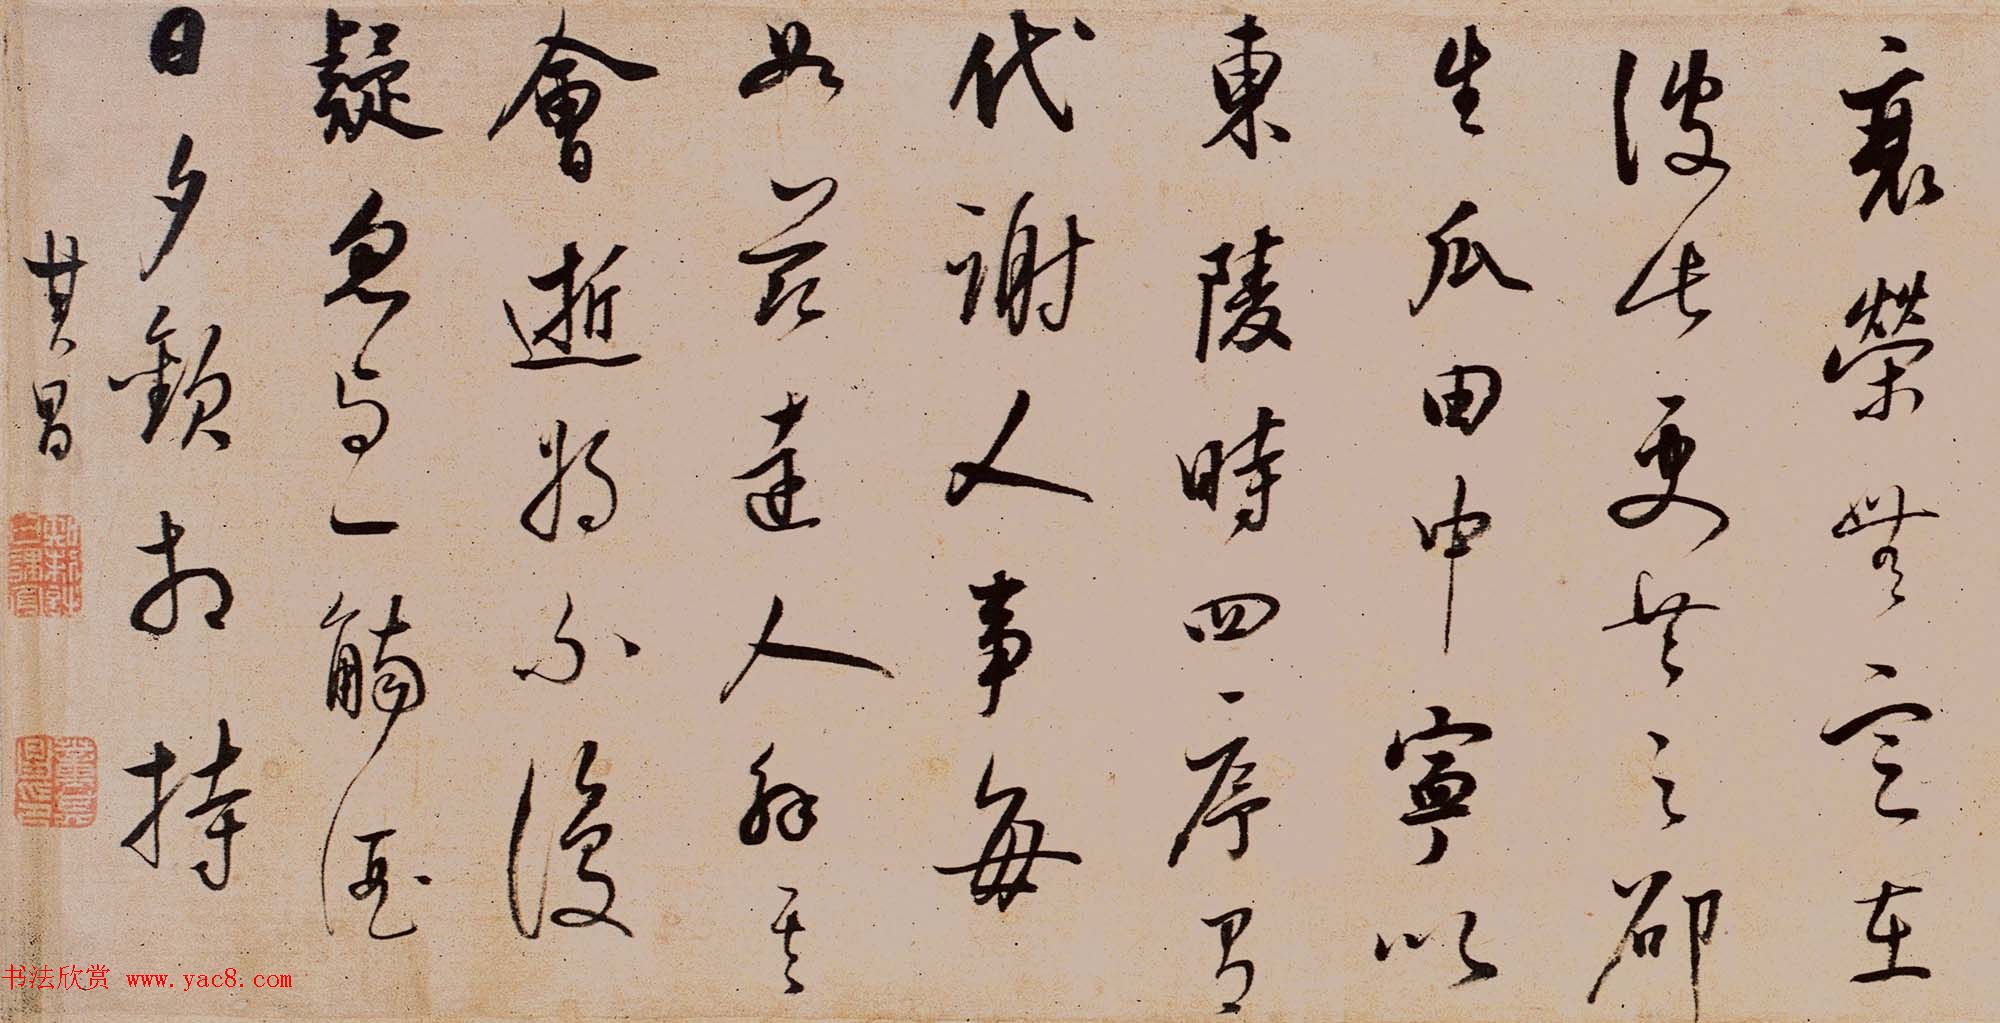 衰榮無定在
彼此更共之邵
生瓜田中寧以
東陵時四序有
代謝人事每
如茲達人解其
會逝將不復
疑忽與一觴酒
日夕歡相持
其昌
知制誥日講官
董其昌印
书法欣赏 www.yac8.com